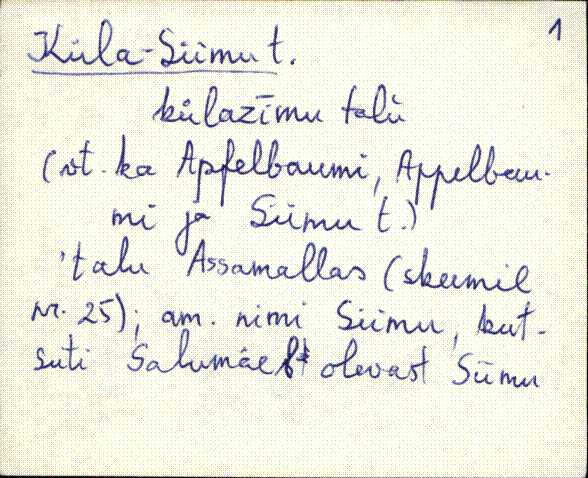 1
Küla-Siimu t.
külazīmu talù
(vt. ka Apfelbaumi, Appelbau-
mi ja Siimu t.)
'talu Assamallas (skeemil
nr. 25); am. nimi Siimu, kut-
suti Salumäe olevast Siimu